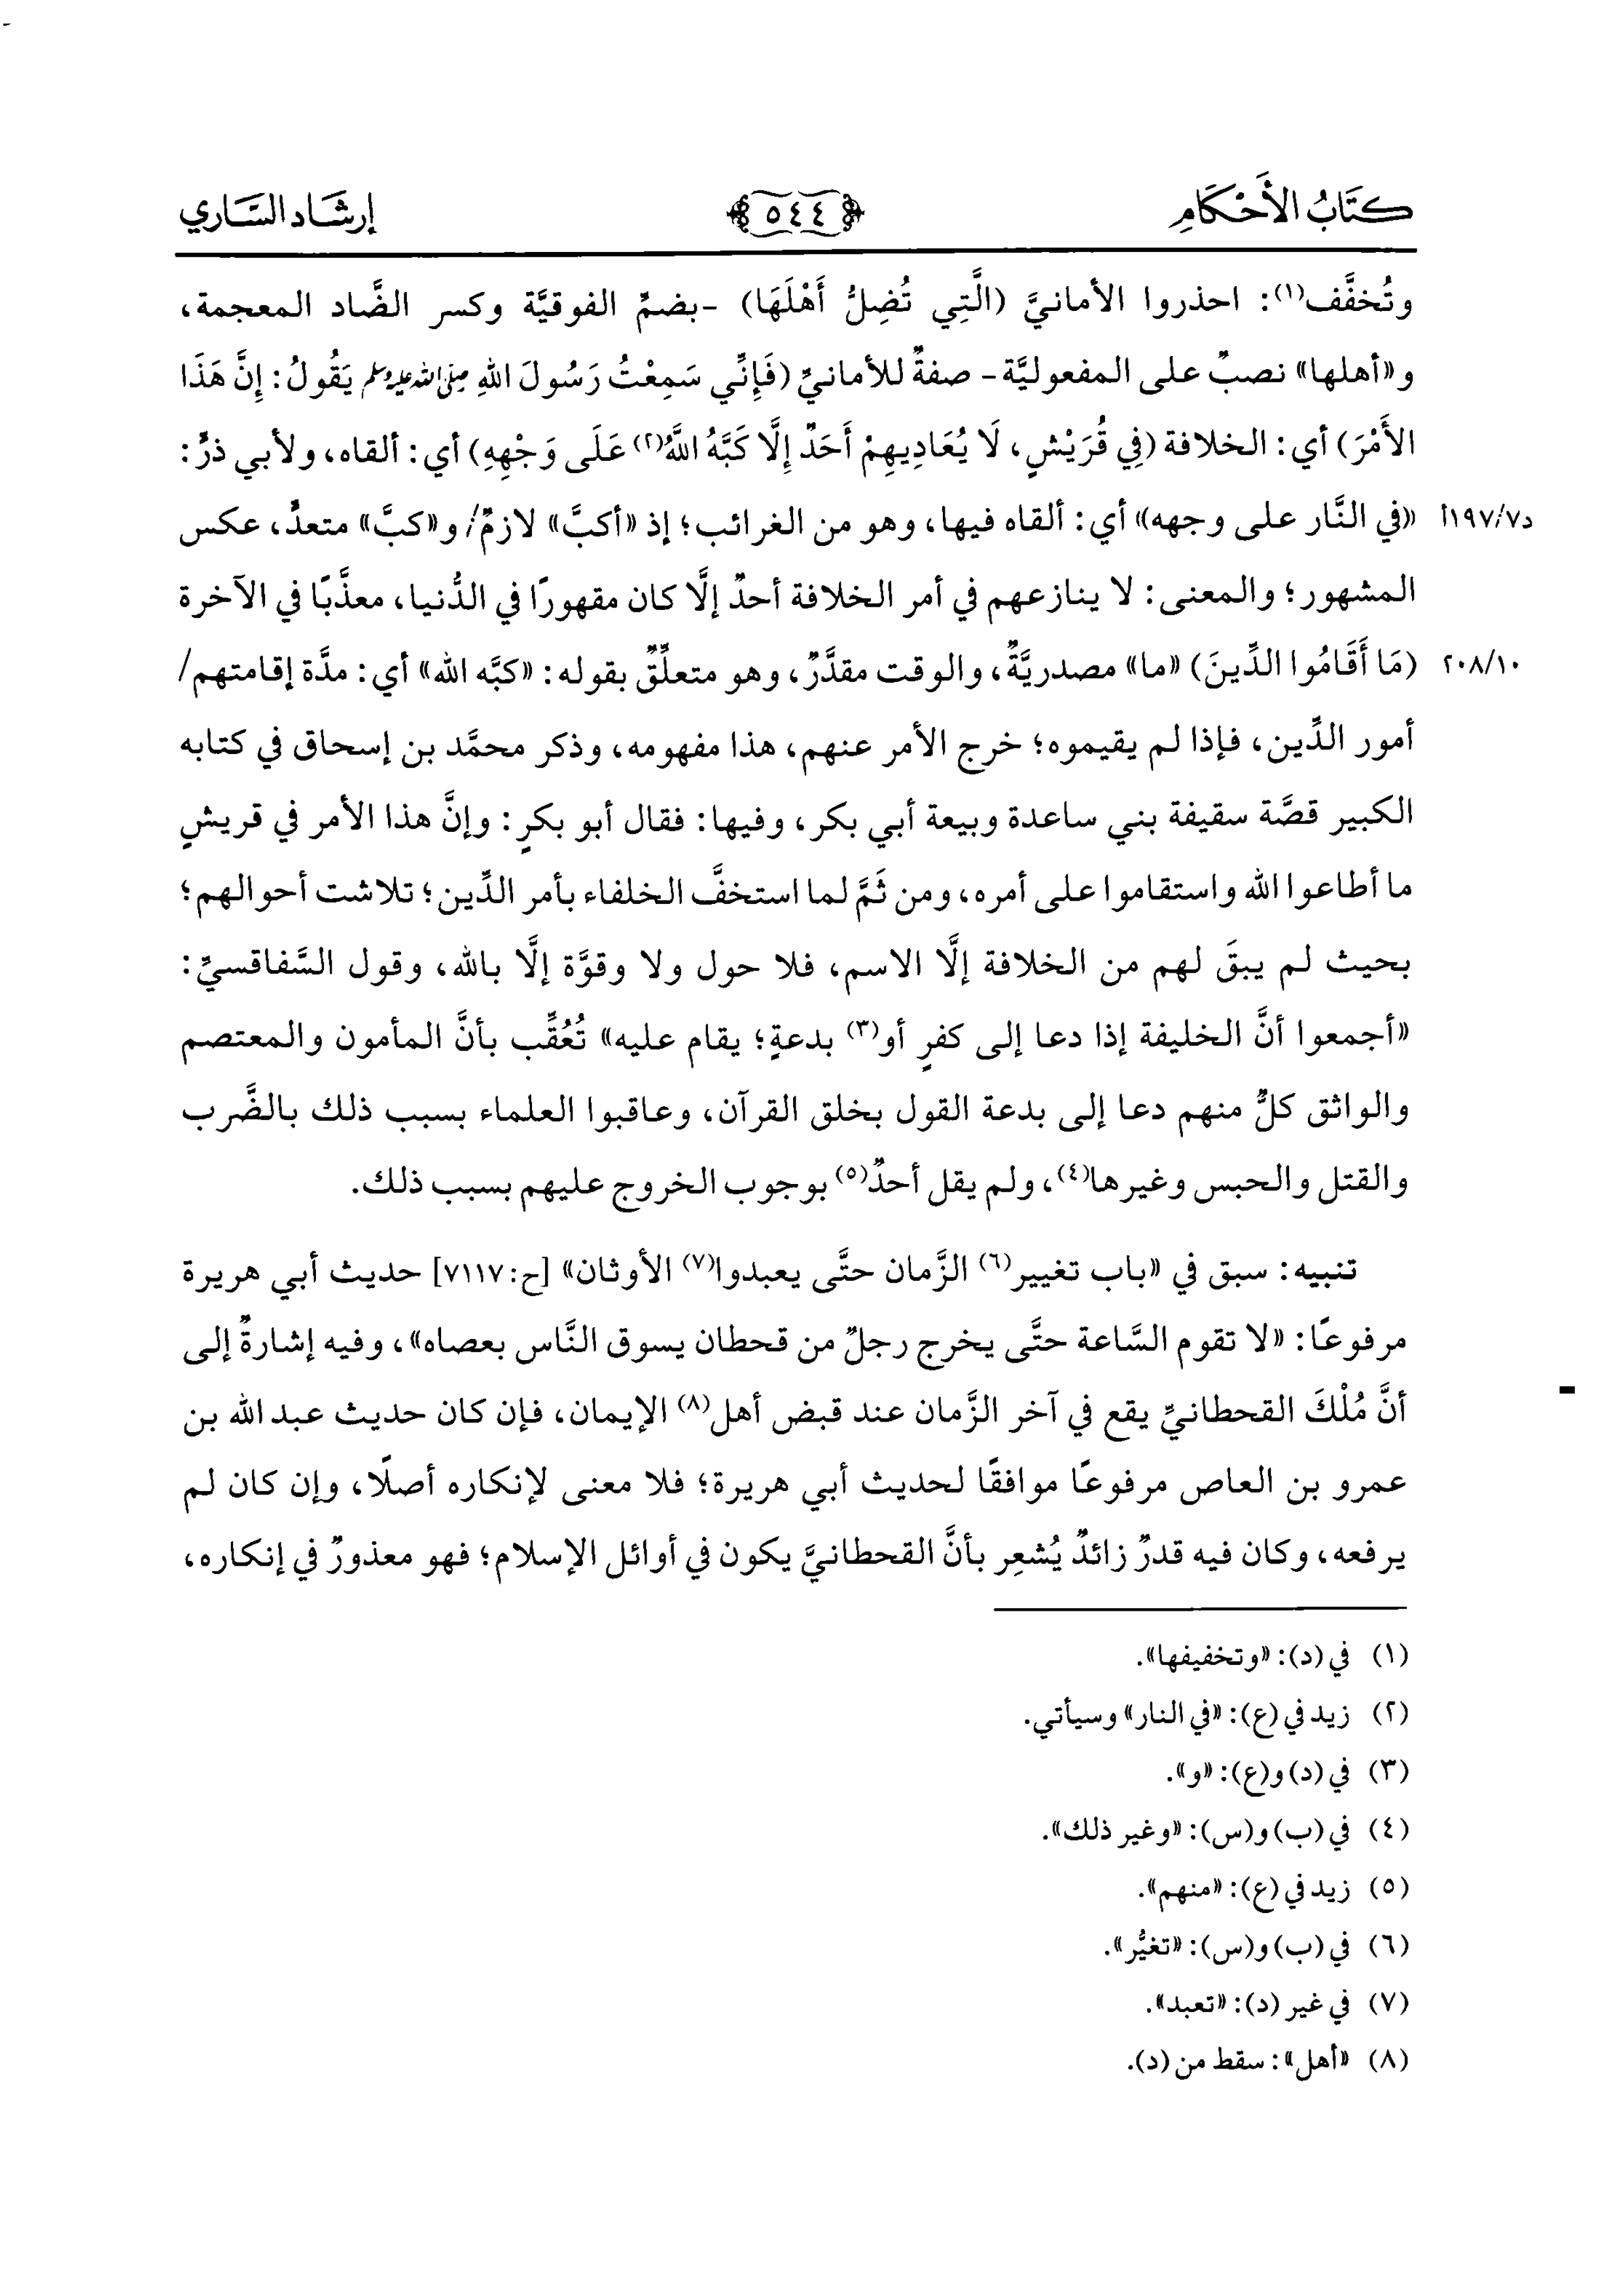 كتاب الأحكام ٥٤٤ إرشاد الساري
وتُخفَّف(١): احذروا الأمانيَّ (الَّتِي تُضِلُّ أَهْلَهَا) -بضمِّ الفوقيَّة وكسر الضَّاد المعجمة،
و«أهلها» نصبٌ على المفعوليَّة- صفةٌ للأمانيِّ (فَإِنِّي سَمِعْتُ رَسُولَ اللهِ صلى الله عليه وسلم يَقُولُ: إِنَّ هَذَا
الأَمْرَ) أي: الخلافة (فِي قُرَيْشٍ، لَا يُعَادِيهِمْ أَحَدٌ إِلَّا كَبَّهُ اللَّهُ(٢) عَلَى وَجْهِهِ) أي: ألقاه، ولأبي ذرٍّ:
«في النَّار على وجهه» أي: ألقاه فيها، وهو من الغرائب؛ إذ «أكبَّ» لازمٌ/ و«كبَّ» متعدٍّ، عكس د٧/١٩٧أ
المشهور؛ والمعنى: لا ينازعهم في أمر الخلافة أحدٌ إلَّا كان مقهورًا في الدُّنيا، معذَّبًا في الآخرة
(مَا أَقَامُوا الدِّينَ) «ما» مصدريَّةٌ، والوقت مقدَّرٌ، وهو متعلِّقٌ بقوله: «كبَّه الله» أي: مدَّة إقامتهم/ ٢٠٨/١٠
أمور الدِّين، فإذا لم يقيموه؛ خرج الأمر عنهم، هذا مفهومه، وذكر محمَّد بن إسحاق في كتابه
الكبير قصَّة سقيفة بني ساعدة وبيعة أبي بكر، وفيها: فقال أبو بكرٍ: وإنَّ هذا الأمر في قريشٍ
ما أطاعوا الله واستقاموا على أمره، ومن ثَمَّ لما استخفَّ الخلفاء بأمر الدِّين؛ تلاشت أحوالهم؛
بحيث لم يبقَ لهم من الخلافة إلَّا الاسم، فلا حول ولا وقوَّة إلَّا بالله، وقول السَّفاقسيِّ:
«أجمعوا أنَّ الخليفة إذا دعا إلى كفرٍ أو(٣) بدعةٍ؛ يقام عليه» تُعُقِّب بأنَّ المأمون والمعتصم
والواثق كلٌّ منهم دعا إلى بدعة القول بخلق القرآن، وعاقبوا العلماء بسبب ذلك بالضَّرب
والقتل والحبس وغيرها(٤)، ولم يقل أحدٌ(٥) بوجوب الخروج عليهم بسبب ذلك.
تنبيه: سبق في «باب تغيير(٦) الزَّمان حتَّى يعبدوا(٧) الأوثان» [ح:٧١١٧] حديث أبي هريرة
مرفوعًا: «لا تقوم السَّاعة حتَّى يخرج رجلٌ من قحطان يسوق النَّاس بعصاه»، وفيه إشارةٌ إلى
أنَّ مُلْكَ القحطانيِّ يقع في آخر الزَّمان عند قبض أهل(٨) الإيمان، فإن كان حديث عبد الله بن
عمرو بن العاص مرفوعًا موافقًا لحديث أبي هريرة؛ فلا معنى لإنكاره أصلًا، وإن كان لم
يرفعه، وكان فيه قدرٌ زائدٌ يُشعِر بأنَّ القحطانيَّ يكون في أوائل الإسلام؛ فهو معذورٌ في إنكاره،
(١) في (د): «وتخفيفها».
(٢) زيد في (ع): «في النار» وسيأتي.
(٣) في (د) و(ع): «و».
(٤) في (ب) و(س): «وغير ذلك».
(٥) زيد في (ع): «منهم».
(٦) في (ب) و(س): «تغيُّر».
(٧) في غير (د): «تعبد».
(٨) «أهل»: سقط من (د).